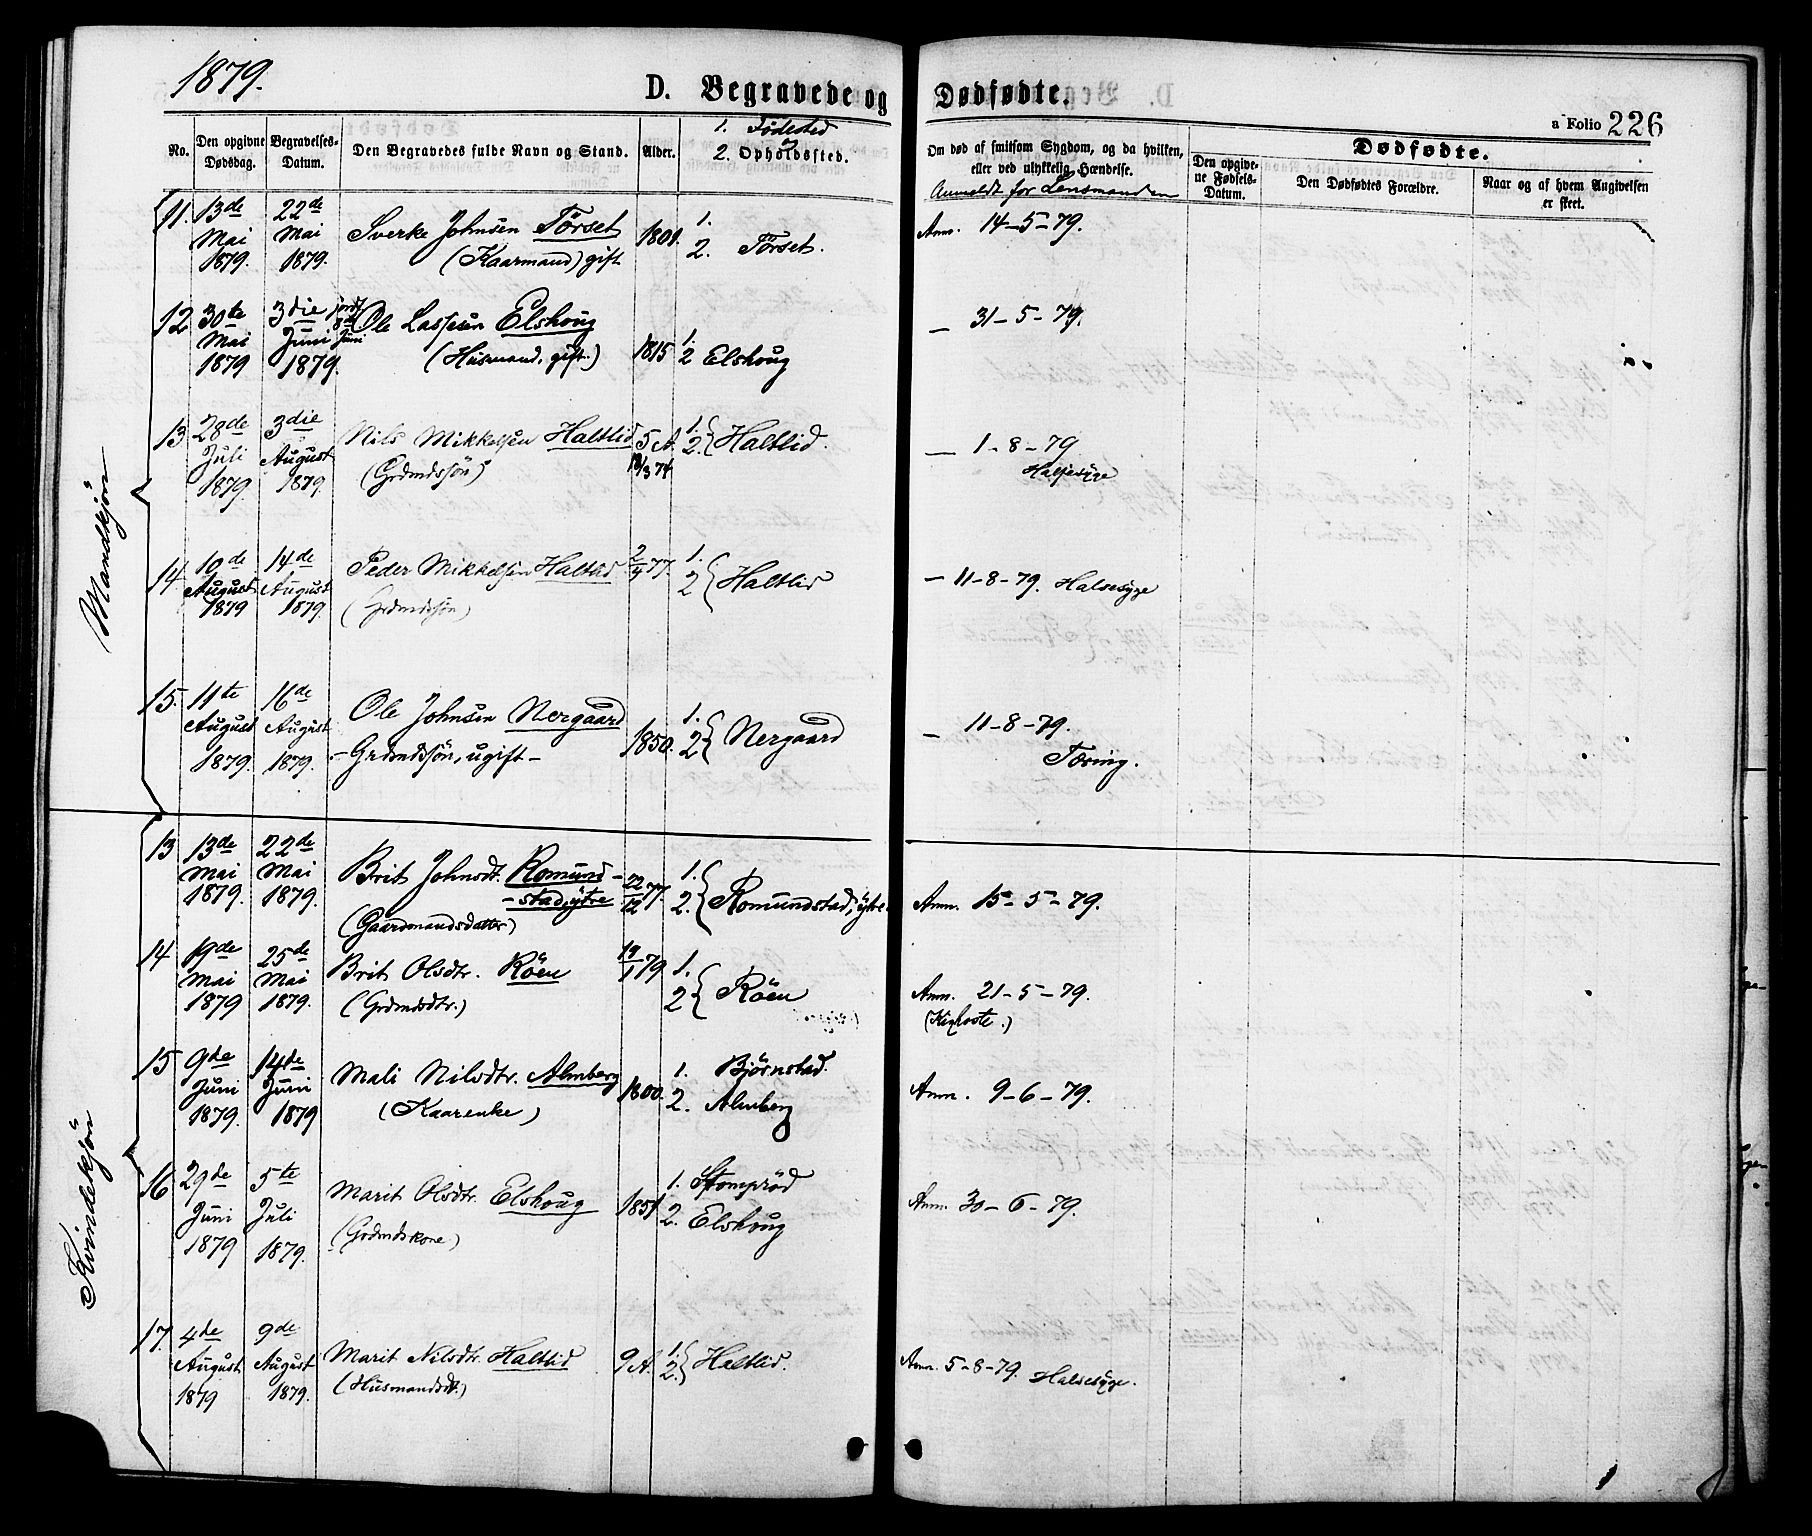 1879.
D. Begravede og Dødfødte.
a Folio 226
No.
Den opgivne Dødsdag.
Begravelses-Datum.
Den Begravedes fulde Navn og Stand.
Alder.
1. Fødested
2. Opholdssted.
Om død af smitsom Sygdom, og da hvilken,
eller ved ulykkelig Hændelse.
Anmeldt for Lensmanden
Dødfødte.
Den opgivne Fødsels-Datum.
Den Dødfødtes Forældre.
Naar og af hvem Angivelsen er skeet.
Mandkjön
11. 13de Mai 1879. 22de Mai 1879. Sverke Johnsen Törset (Kaarmand) gift 1801. 1. 2. Törset. Anm. 14-5-79.
12 30te Mai 1879 3die Juni 1879. jordf 8de Juni Ole Lassesen Elshoug (Husmand, gift.) 1815 1. 2 Elshoug — 31-5-79.
13 28de Juli 1879. 3die August 1879. Nils Mikkelsen Haltlid (Grdmdssön) 5 A. 1. 2. Haltlid. — 1-8-79 Halsesyge
14 10de August 1879 14de August 1879. Peder Mikkelsen Haltlid (Grdmdssön) 2/4 77. 1. 2 Haltlid — 11-8-79. Halsesyge
15. 11te August 1879. 16de August 1879. Ole Johnsen Nergaard - Grdmdssön, ugift - 1850. 1. 2 Nergaard — 11-8-79. Tæring.
Kvindekjön
13 13de Mai 1879. 22de Mai 1879. Brit Johnsdt. Romund- -stad, ytre (Gaardmandsdatter) 22/12 77. 1. 2. Romundstad, ytre. Anm. 15-5-79.
14 19de Mai 1879 25de Mai 1879. Brit Olsdtr. Röen (Grdmdsdtr.) 19/1 79 1. 2 Röen Anm. 21-5-79. (Kighoste.)
15 9de Juni 1879. 14de Juni 1879 Mali Nilsdtr. Almberg (Kaarenke) 1800. 1. Björnstad. 2. Almberg Anm. 9-6-79.
16 29de Juni 1879 5te Juli 1879. Marit Olsdtr. Elshoug (Grdmdskone) 1851 1. Stompröd 2. Elshoug Anm. 30-6-79.
17. 4de August 1879 9de August 1879. Marit Nilsdtr. Haltlid (Husmandsdt.) 9 A. 1. 2. Haltlid. Anm. 5-8-79. Halsesyge.